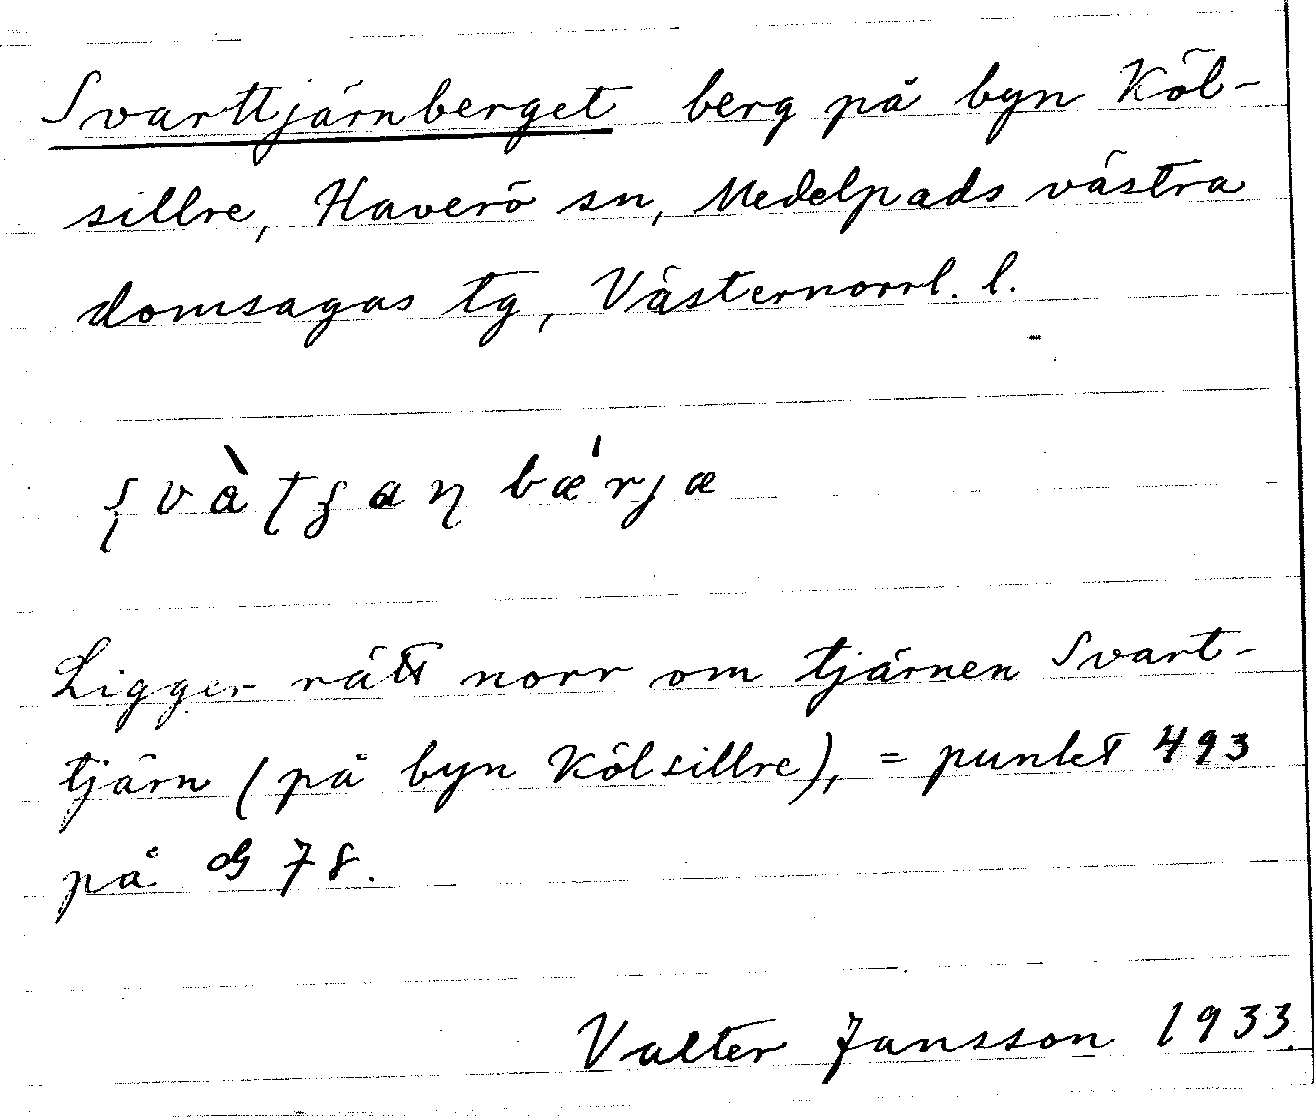 Svarttjärnberget berg på byn Köl-
sillre, Haverö sn, Medelpads västra
domsagas tg, Västernorrl. l.
ʂvàʈʂaɳbǽrjæ
Ligger rätt norr om tjärnen Svart-
tjärn (på byn Kölsillre), = punkt 493
på 78.
Valter Jansson 1933.